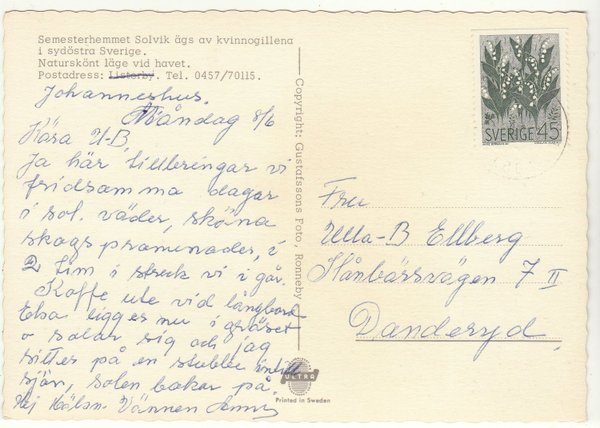 Semesterhemmet Solvik ägs av kvinnogillena
i sydöstra Sverige.
Naturskönt läge vid havet.
Postadress: Listerby. Tel. 0457/70115.
Johannishus.
Måndag 8/6
Kära U-B.
Ja här tillbringar vi
fridsamma dagar
i sol. väder, sköna
skogspromenader, i
2 tim i streck vi i går.
Kaffe ute vid långbord
Elsa ligger nu i gräset
o solar sig och jag
sitter på en stubbe intill
sjön, solen bakar på.
Hej Hälsn. Vännen
Copyright: Gustafssons Foto, Ronneby
ULTRA
Printed in Sweden
SVERIGE 45
Fru
Ulla-B Ellberg
Hånbärsvägen 7 II
Danderyd.